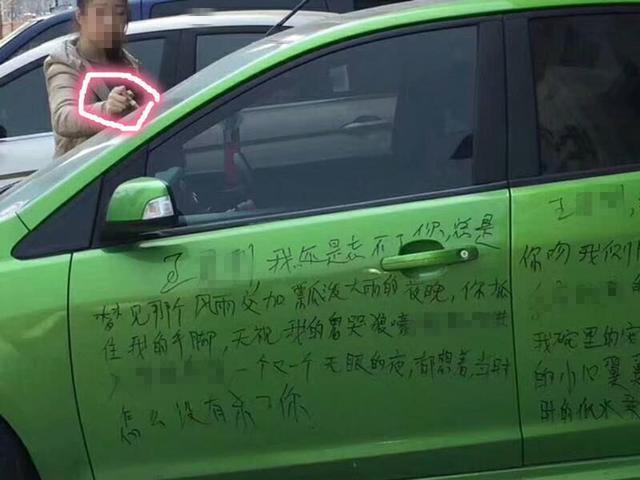 王 我还是忘不了你,总是
梦见那个风雨交加瓢泼大雨的夜晚,你抓
住我的手脚,无视我的鬼哭狼嚎
一个又一个无眠的夜,都想着,当时
怎么没有杀了你
王
你吻我
我碗里的安
的小口翼
时的低水